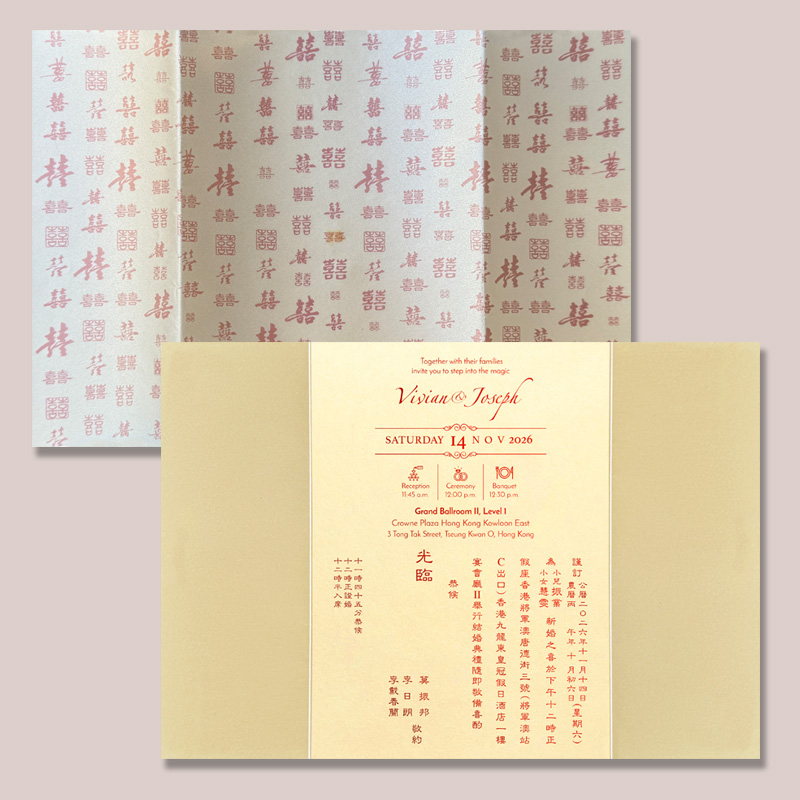 Together with their families
invite you to step into the magic
Vivian & Joseph
SATURDAY 14 NOV 2026
Reception
11:45 a.m.
Ceremony
12:00 p.m.
Banquet
12:30 p.m.
Grand Ballroom II, Level 1
Crowne Plaza Hong Kong Kowloon East
3 Tong Tak Street, Tseung Kwan O, Hong Kong
謹訂
公曆二〇二六年十一月十四日(星期六)
農曆丙午年十月初六日
為
小兒振黨
小女慧雯
新婚之喜於下午十二時正
假座香港將軍澳唐德街三號(將軍澳站
C出口)香港九龍東皇冠假日酒店一樓
宴會廳II舉行結婚典禮隨即敬備喜酌
恭候
光臨
莫振邦
李日朗
李戴香蘭
敬約
十一時四十五分恭候
十二時正證婚
十二時半入席